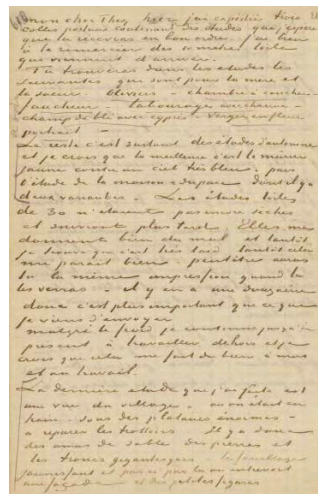 mon cher Theo, hier j'ai expédié trois
colis postaux contenant des études que j'espère
que tu recevras en bon ordre. j'ai bien
à te remercier des 10 metres toile
qui viennent d'arriver.
Tu trouveras dans les études les
suivantes qui sont pour la mère et
la soeur. Oliviers – chambre à coucher –
faucheur – labourage avec charrue –
champ de blé avec cyprès – verger en fleur
portrait –
Le reste c'est surtout des études d'automne
et je crois que la meilleure c'est le murier
jaune contre un ciel très bleu. puis
l'étude de la maison et du parc dont il y a
deux variantes. Les études toiles
de 30 n'étaient pas encore sèches
et suivront plus tard. Elles me
donnent bien du mal et tantôt
je trouve que c'est très laid tantôt cela
me parait bien peutêtre auras
tu la même impression quand tu
les verras – il y en a une douzaine
donc c'est plus important que ce que
je viens d'envoyer
malgré le froid je continue jusqu'à
présent à travailler dehors et je
crois que cela me fait du bien à moi
et au travail.
La dernière étude que j'ai faite est
une vue du village – où on était en
train – sous des platanes énormes –
à réparer les trottoirs Il y a donc
des amas de sable des pierres et
les troncs gigantesques – le feuillage
jaunissant et par ci par là on entrevoit
une façade et des petites figures